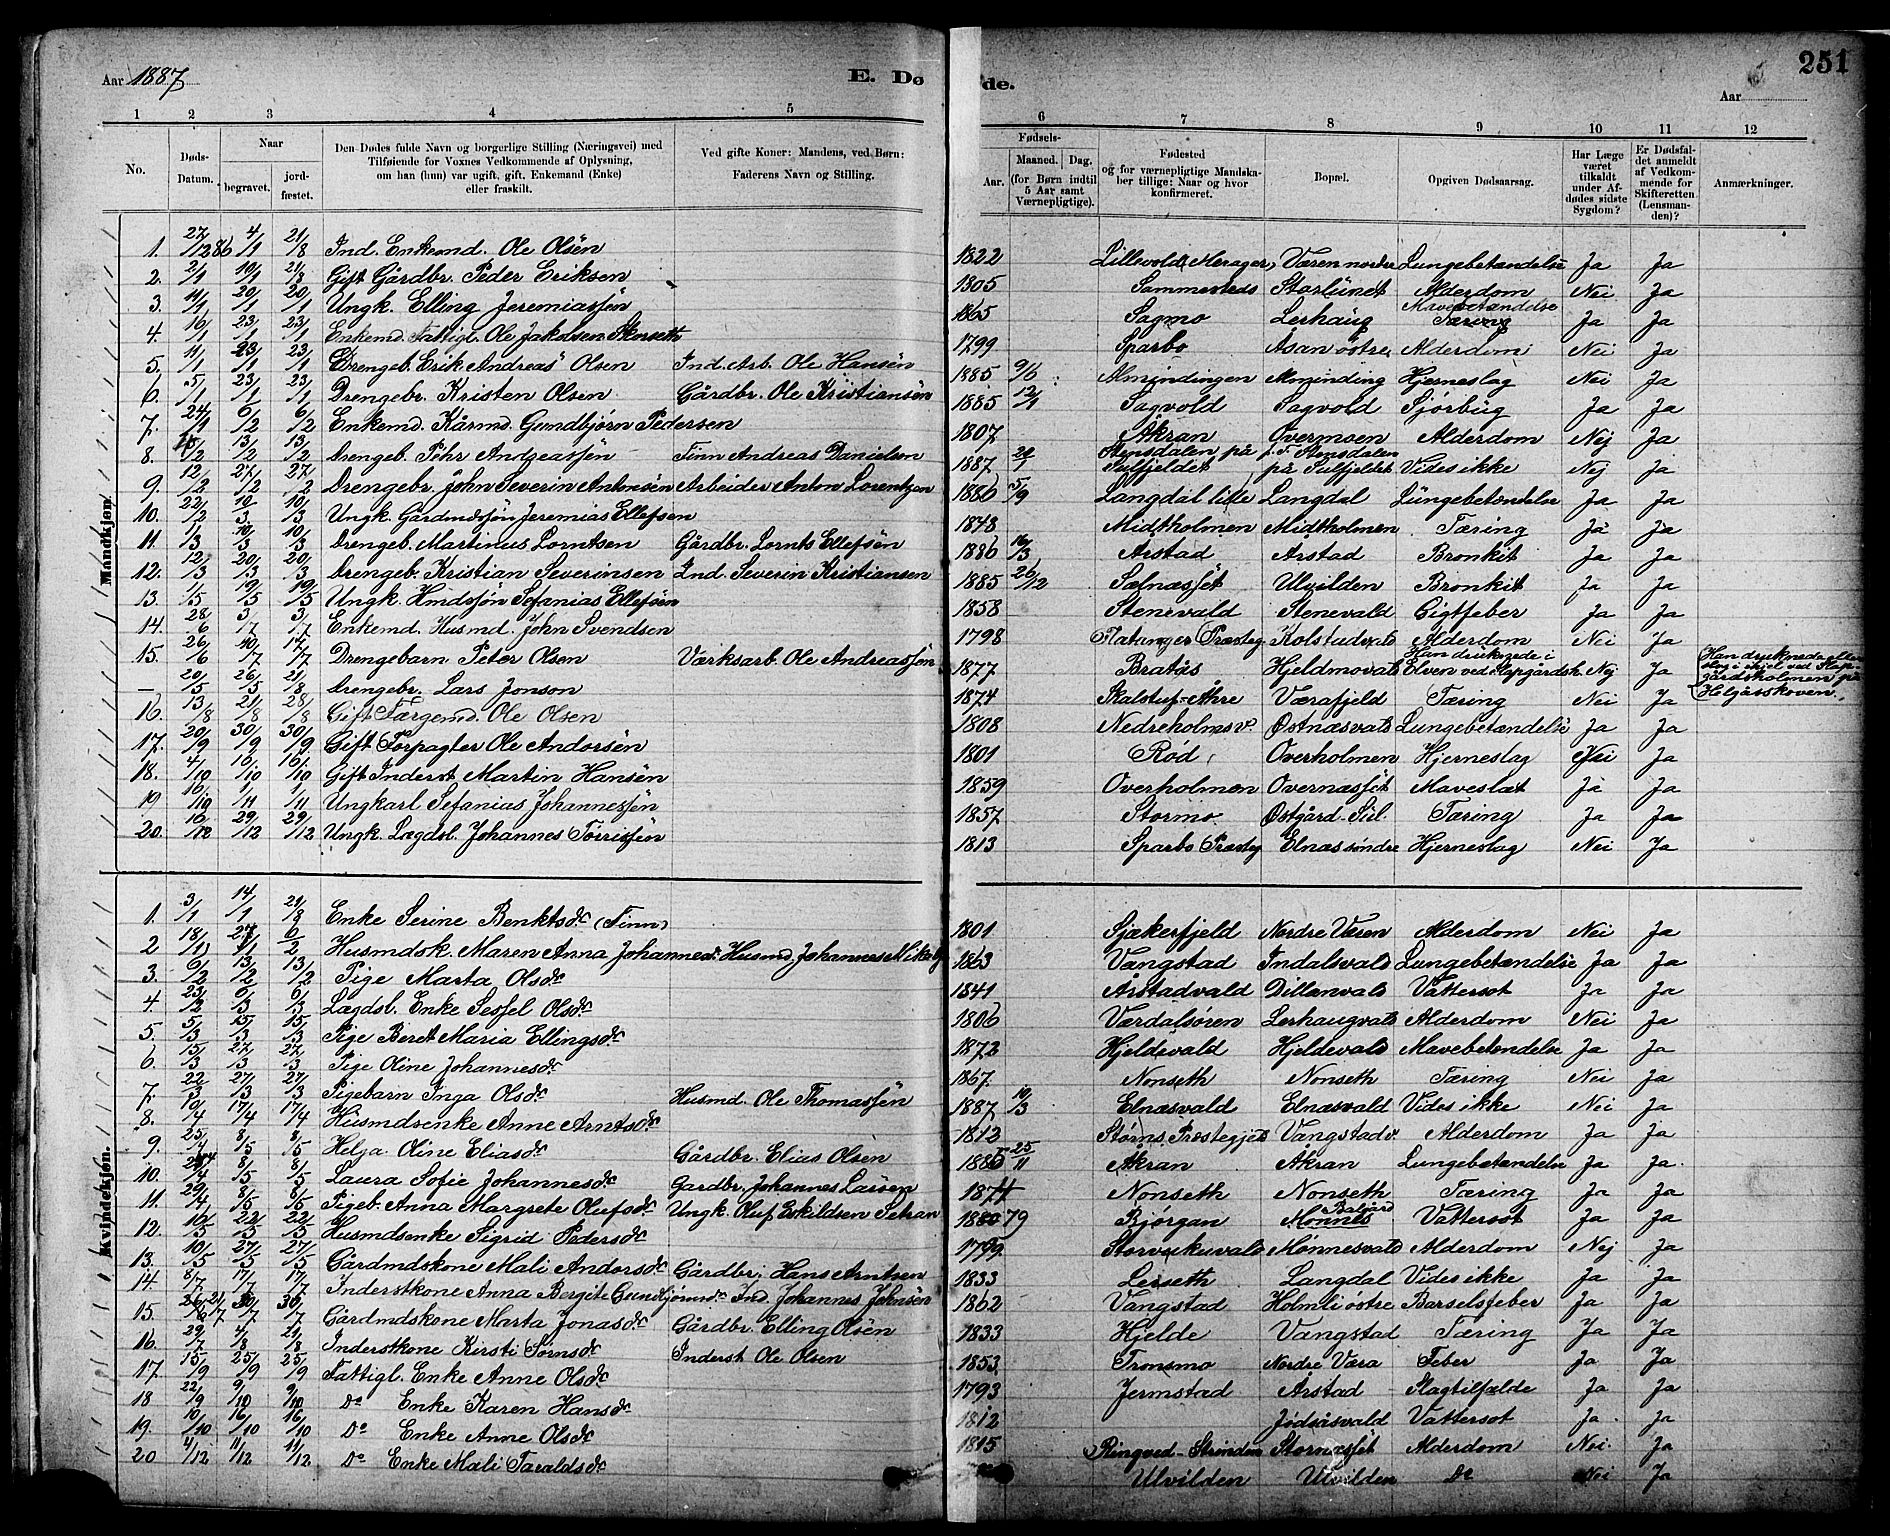 Aar 1887 E. Dø de. Aar 251
1 2 3 4 5 6 7 8 9 10 11 12
No. Døds-Datum. Naar begravet. jordfæstet. Den Dødes fulde Navn og borgerlige Stilling (Næringsvei) med Tilføiende for Voxnes Vedkommende af Oplysning, om han (hun) var ugift, gift, Enkemand (Enke) eller fraskilt. Ved gifte Koner: Mandens, ved Børn: Faderens Navn og Stilling. Fødsels- Aar. Maaned. Dag. (for Børn indtil 5 Aar samt Værnepligtige). Fødested og for værnepligtige Mandskaber tillige: Naar og hvor konfirmeret. Bopæl. Opgiven Dødsaarsag. Har Læge været tilkaldt under Afdødes sidste Sygdom? Er Dødsfaldet anmeldt af Vedkommende for Skifteretten (Lensmanden)? Anmærkninger.
Mandkjøn.
1. 27/12 86 4/1 21/8 Ind. Enkemd. Ole Olsén 1822 Lillevold, Merager, Væren nordre Lungebetændelse Ja Ja
2. 2/1 10/1 21/8 Gift Gårdbr. Peder Eriksen 1805 Sammesteds Storlunet Alderdom Nei Ja
3. 11/1 20/1 20/1 Ungk. Elling Jeremiassén 1865 Sagmo Lerhaug Mavebetændelse Tæring Ja Ja
4. 16/1 23/1 23/1 Enkemd. Fattigl. Ole Jakobsen Skorseth 1799 Sparbo Åsan östre Alderdom Nei Ja
5. 11/1 23/1 23/1 Drengeb. Erik Andreas Olsen Ind. Arb. Ole Hansén 1885 9/6 Almindingen Alminding Hjerneslag Nei Ja
6. 5/1 23/1 23/1 Drengebr. Kristen Olsen Gårdbr. Ole Kristiansén 1885 12/1 Sagvold Sagvold Ja Ja
7. 24/1 6/2 6/2 Enkemd. Kårmd. Gundbjørn Pedersen 1807 Åkran Overmoen Alderdom Nej Ja
8. 13/2 13/2 Drengeb. Pehr Andreassén Finn Andreas Danielsen 1887 Stensdalen på Sulfjeldet Stensdalen på Sulfjeldet Vides ikke Nej Ja
9. 12/2 27/2 27/2 Drengebr. John Severin Antonsén Arbeider Anton Lorentzen 1886 5/9 Langdal lille Langdal Lungebetændelse Ja Ja
10. 22/2 10/3 10/3 Ungk. Gårdmdssön Jeremias Ellefsen 1848 Midtholmen Midtholmen Tæring Ja Ja
11. 1/3 10/3 10/3 Drengeb. Martinus Lorntsen Gårdbr. Lornts Ellefsén 1886 Årstad Årstad Bronkit Ja Ja
12. 12/3 20/3 20/3 Drengeb. Kristian Severinsen Ind. Severin Kristiansen 1885 26/12 Selnæssét Ulvilden Bronkit Ja Ja
13. 1/5 19/5 19/5 Ungk. Hmdssön Sefanias Ellefsén 1858 Stenevald Stenevald Gigtfeber Ja Ja
14. 28/6 3/7 3/7 Enkemd. Husmd. John Svendsen 1798 Kolstadvald Alderdom Nei Ja
15. 26/6 10/7 17/7 Drengebarn Peter Olsen Værksarb. Ole Andreassén 1877 Bratås Hjeldmovald Han druknede i Elven ved Nej Ja
— 20/5 26/5 21/8 Drengebr. Lars Jonson 1874 Værafjeld Tæring Nei Ja
16. 13/8 21/8 28/8 Gift Færgemd. Ole Olsen 1808 Nedreholmsv. Östnæsvald Lungebetændelse Ja Ja
17. 20/9 30/9 30/9 Gift Forpagter Ole Andorsén 1801 Rød Overholmen Hjerneslag Nei Ja
18. 4/10 16/10 16/10 Gift Inderst Martin Hansén 1859 Overholmen Overnæssét Ja Ja
19 16/10 1/11 1/11 Ungkarl Sefanias Johannessén 1857 Stormo Östgård-Sul. Tæring Ja Ja
20. 16/12 29/12 29/12 Ungk. Lægdsl. Johannes Torrissén 1813 Sparbo Præsteg Elnæs søndre Hjerneslag Nei Ja
Kvindekjøn.
1. 3/1 14/1 21/8 Enke Serine Benktsdr (Finn) 1801 Sjækerfjeld Nordre Væren Alderdom Nei Ja
2 18/1 27/1 6/2 Husmdsk. Maren Anna Johannesdr. Husmd. Johannes 1863 Vangstad Indalsvald Lungebetændelse Ja Ja
3. 9/2 13/2 13/2 Pige Marta Olsdr 1841 Årstadvald Dillanvald Vattersot Ja Ja
4. 23/2 6/3 6/3 Lægdsl. Enke Sessel Olsdr 1806 Værdalsören Lerhaugvald Alderdom Nei Ja
5. 5/3 15/3 15/3 Pige Beret Maria Ellingsdr 1872 Hjeldevald Hjeldevald Mavebetændelse Ja Ja
6. 15/3 27/3 27/3 Pige Oline Johannesdr 1867 Nonseth Nonseth Tæring Nei Ja
7. 22/3 27/3 27/3 Pigebarn Inga Olsdr Husmd. Ole Thomassén 1887 10/3 Elnæsvald Elnæsvald Vides ikke Nei Ja
8. 10/4 17/4 17/4 Husmdsenke Anne Arntsdr 1812 Størns Præstegjeld Vangstadv. Alderdom Ja Ja
9. 25/4 8/5 8/5 Helga Oline Eliasdr Gårdbr. Elias Olsen 1885 25/11 Åkran Åkran Lungebetændelse Ja Ja
10. 8/5 8/5 Laura Sofie Johannesdr Gardbr. Johannes Larsen Nonseth Nonseth Tæring Ja Ja
11. 29/4 8/5 8/5 Pigeb. Anna Margrete Olufsdr Ungk. Oluf Eskildsen Setran 1880 79 Bjørgan Balgård Monnes Vattersot Ja Ja
12. 10/5 22/5 22/5 Husmdsenke Sigrid Pedersdr 1799. Storvukuvald Mønnesvald Alderdom Nej Ja
13. 10/5 27/5 27/5 Gårdmdskone Mali Andorsdr Gårdbr. Hans Arntsen 1833 Lerseth Langdal Vides ikke Ja Ja
14. 8/7 17/7 17/7 Inderstkone Anna Bergite Gundbjørnsdr Ind. Johannes Johnsén 1862 Vangstad Holmli östre Barselsfeber Ja Ja
15. 30/7 30/7 Gårdmdskone Marta Jonasdr Gårdbr. Elling Olsén 1833 Hjelde Vangstad Tæring Ja Ja
16. 29/7 4/8 21/8 Inderstkone Kirsti Sørnsdr Inderst Ole Olsen 1853 Tronsmo Nordre Væra Feber Ja Ja
17. 15/9 25/9 25/9 Fattigl. Enke Anne Olsdr 1793 Jermstad Årstad Slagtilfælde Ja Ja
18 22/9 9/10 9/10 Do Enke Karen Hansdr 1812 Jödsåsvald Vattersot Ja Ja
19. 10/10 16/10 16/10 Do Enke Anne Olsdr 1815 Ringved-Strinden Stornæssét Alderdom Nei Ja
20 4/12 11/12 11/12 Do Enke Mali Taraldsdr Ulvilden Ulvilden Do Nei Ja